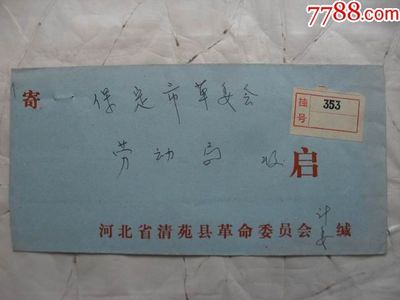 7788.com
寄 保定市革委会
挂号 353
劳动局 收 启
河北省清苑县革命委员会 计委 缄